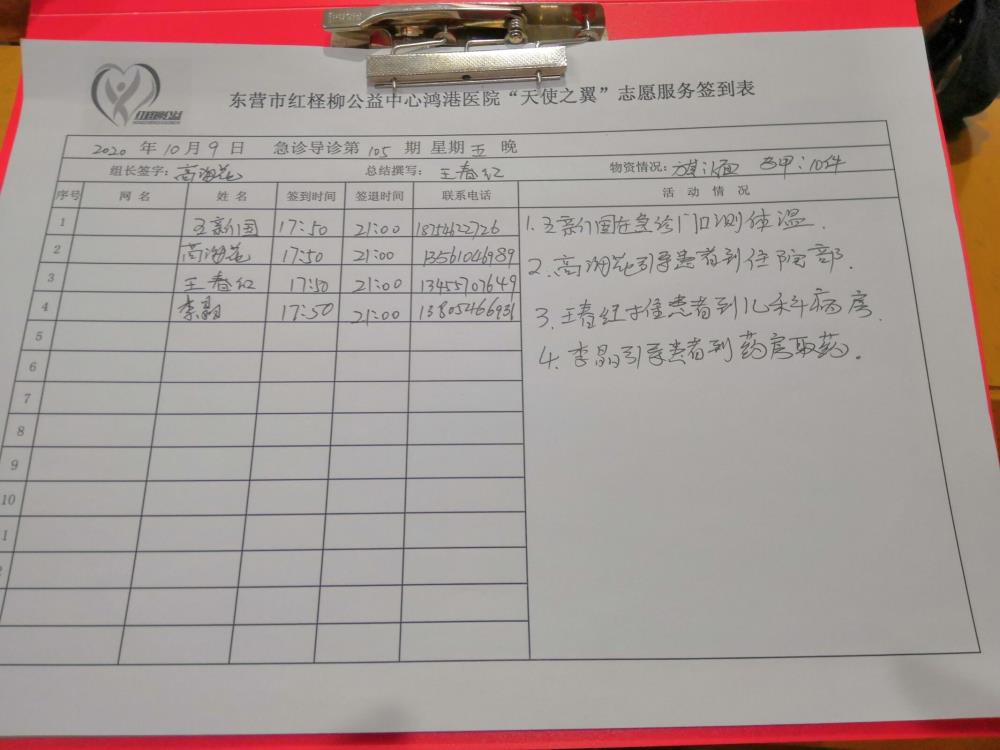 东营市红柽柳公益中心鸿港医院“天使之翼”志愿服务签到表
2020 年 10 月 9 日 急诊导诊第 105 期 星期 五 晚
组长签字: 高海花 总结撰写: 王春红 物资情况: 旗:1面 马甲:10件
序号 网 名 姓 名 签到时间 签退时间 联系电话 活 动 情 况
1 王新国 17:50 21:00 18754622726
2 高海花 17:50 21:00 13561046989
3 王春红 17:50 21:00 13455707649
4 李晶 17:50 21:00 13805466931
5
6
7
8
9
10
1.王新国在急诊门口测体温.
2.高海花引导患者到住院部.
3.王春红推患者到儿科病房.
4.李晶引导患者到药房取药.